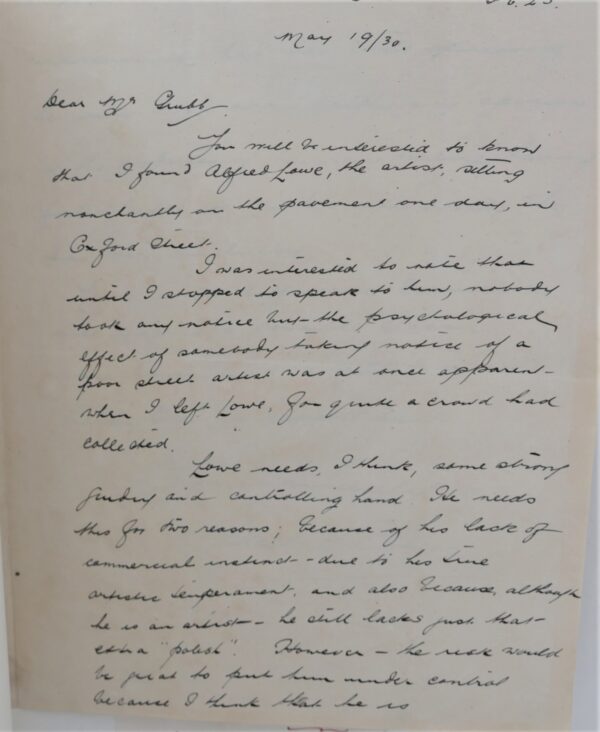 May 19/30.
Dear Mr Grubb
You will be interested to know
that I found Alfred Lowe, the artist, sitting
nonchantly on the pavement one day, in
Oxford Street.
I was interested to note that
until I stopped to speak to him, nobody
took any notice but the psychological
effect of somebody taking notice of a
poor street artist was at once apparent
when I left Lowe, for quite a crowd had
collected.
Lowe needs, I think, some strong
guiding and controlling hand. He needs
this for two reasons; because of his lack of
commercial instinct - due to his true
artistic temperament, and also because, although
he is an artist - he still lacks just that
extra "polish". However - the risk would
be great to put him under control
because I think that he is